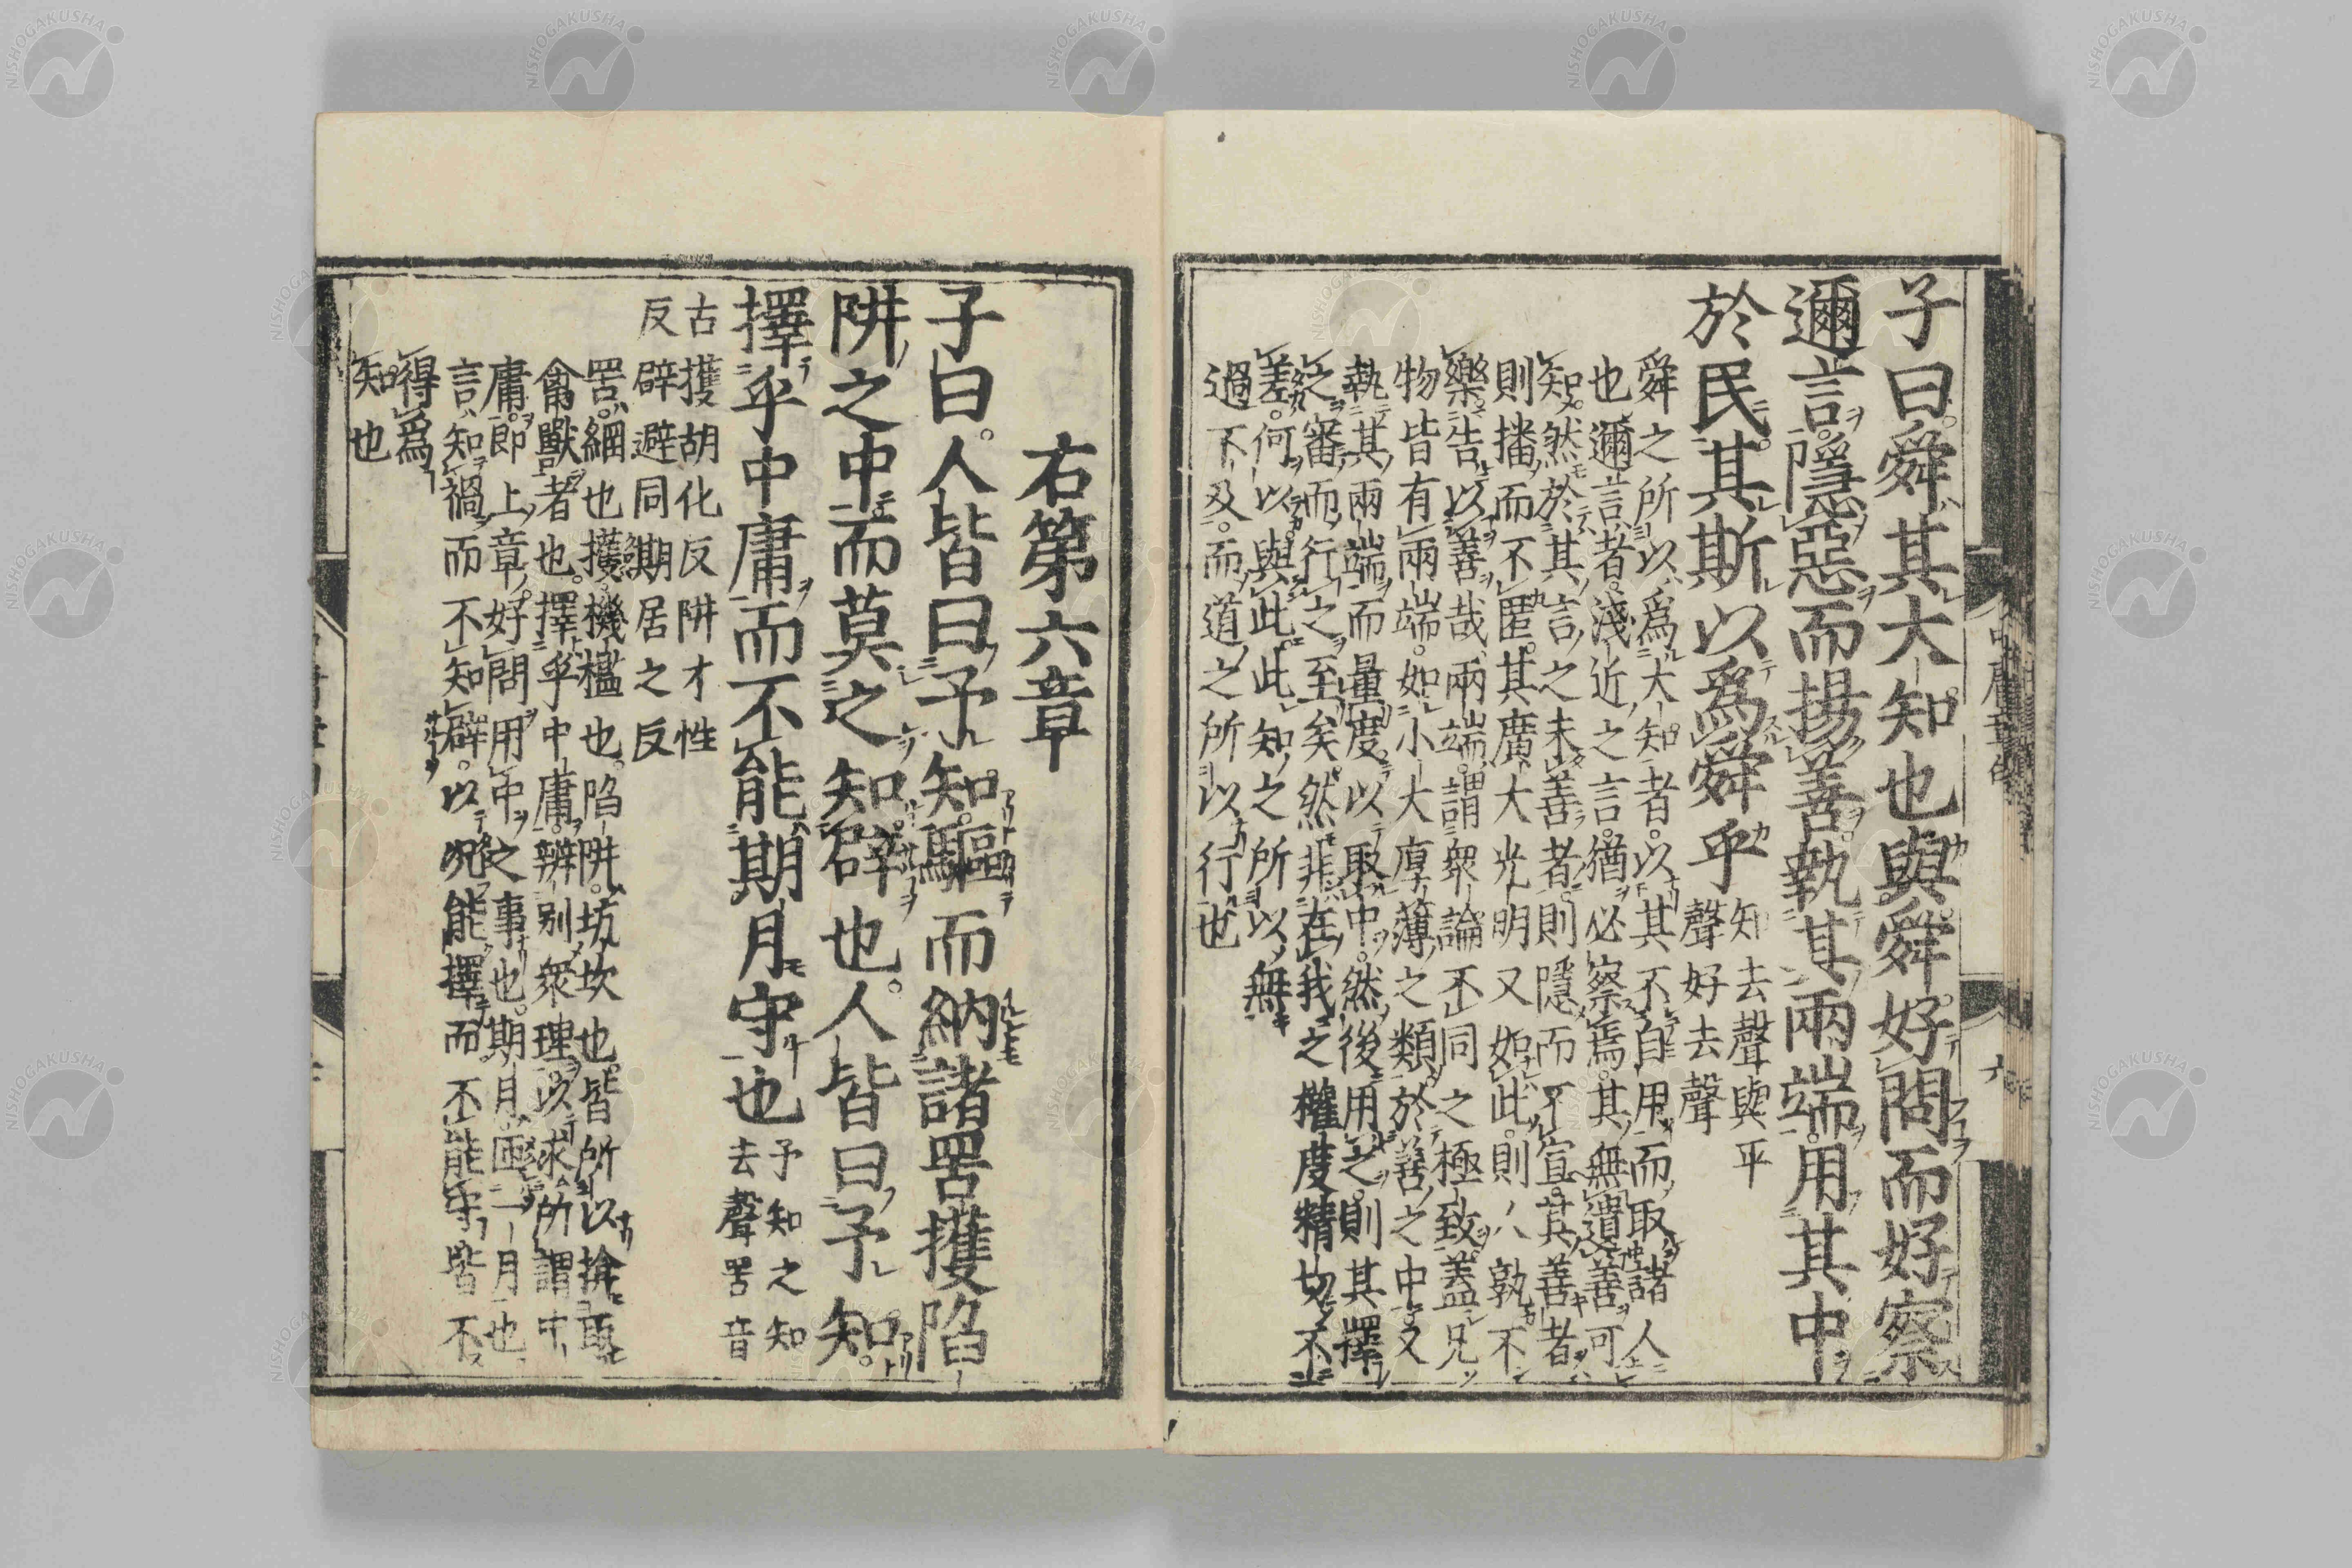 子曰舜其大知也與舜好問而好察
邇言隱惡而揚善執其兩端用其中
於民其斯以爲舜乎
知去聲與平
聲好去聲
舜之所以爲大知者以其不自用而取諸人
也邇言者淺近之言猶必察焉其無遺善可
知然於其言之未善者則隱而不宣其善者
則播而不匿其廣大光明又如此則人孰不
樂告以善哉兩端謂衆論不同之極致蓋凡
物皆有兩端如小大厚薄之類於善之中又
執其兩端而量度以取中然後用之則其擇
之審而行之至矣然非在我之權度精切不
差何以與此此知之所以無
過不及而道之所以行也
右第六章
子曰人皆曰予知驅而納諸罟擭陷
阱之中而莫之知辟也人皆曰予知
擇乎中庸而不能期月守也
予知之知
去聲罟音
古擭胡化反阱才性
反辟避同期居之反
罟網也擭機檻也陷阱坑坎也皆所以揜取
禽獸者也擇乎中庸辨别衆理以求所謂中
庸即上章好問用中之事也期月匝一月也
言知禍而不知辟以况能擇而不能守皆不
得爲
知也
中庸章句
六
NISHOGAKUSHA